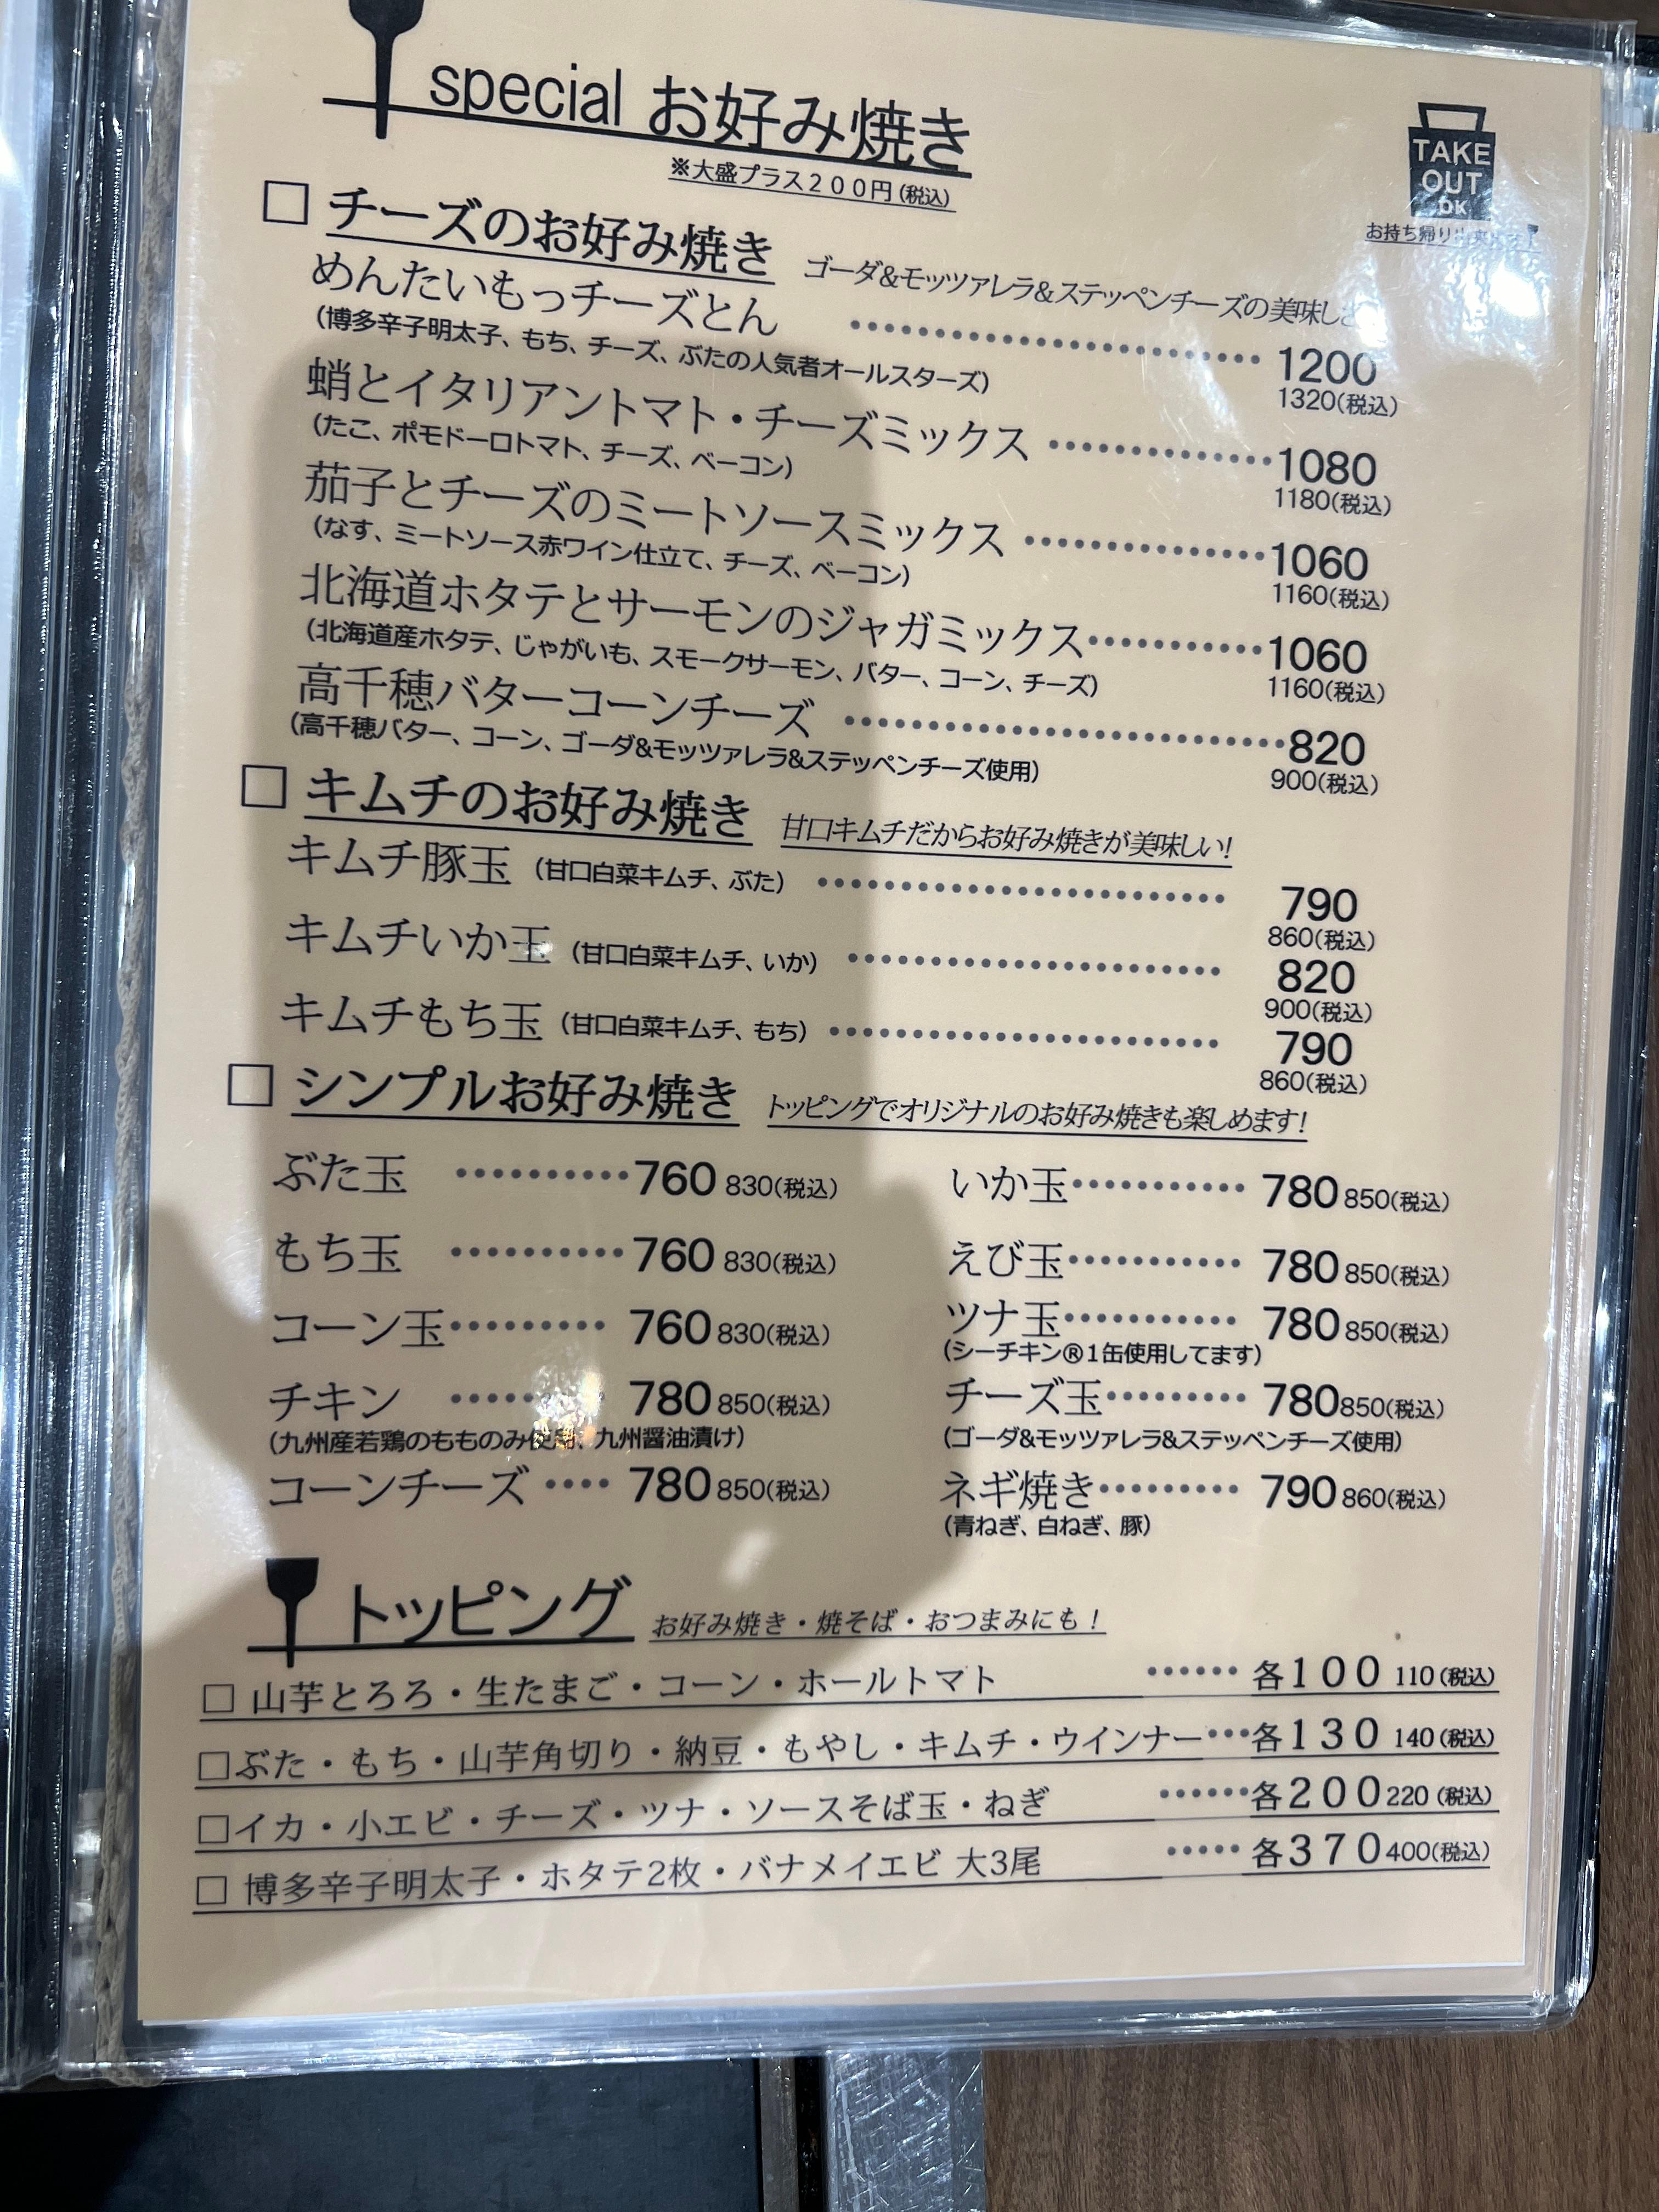 special お好み焼き
※大盛プラス200円(税込)
TAKE
OUT
OK
お持ち帰り
□ チーズのお好み焼き ゴーダ&モッツァレラ&ステッペンチーズの美味し
めんたいもっチーズとん ………… 1200
(博多辛子明太子、もち、チーズ、ぶたの人気者オールスターズ) 1320(税込)
蛸とイタリアントマト・チーズミックス ………… 1080
(たこ、ポモドーロトマト、チーズ、ベーコン) 1180(税込)
茄子とチーズのミートソースミックス ………… 1060
(なす、ミートソース赤ワイン仕立て、チーズ、ベーコン) 1160(税込)
北海道ホタテとサーモンのジャガミックス ………… 1060
(北海道産ホタテ、じゃがいも、スモークサーモン、バター、コーン、チーズ) 1160(税込)
高千穂バターコーンチーズ ………… 820
(高千穂バター、コーン、ゴーダ&モッツァレラ&ステッペンチーズ使用) 900(税込)
□ キムチのお好み焼き 甘口キムチだからお好み焼きが美味しい!
キムチ豚玉 (甘口白菜キムチ、ぶた) ………… 790
860(税込)
キムチいか玉 (甘口白菜キムチ、いか) ………… 820
900(税込)
キムチもち玉 (甘口白菜キムチ、もち) ………… 790
860(税込)
□ シンプルお好み焼き トッピングでオリジナルのお好み焼きも楽しめます!
ぶた玉 ………… 760 830(税込)
もち玉 ………… 760 830(税込)
コーン玉 ………… 760 830(税込)
チキン ………… 780 850(税込)
(九州産若鶏のもものみ使用、九州醤油漬け)
コーンチーズ …… 780 850(税込)
いか玉 ………… 780 850(税込)
えび玉 ………… 780 850(税込)
ツナ玉 ………… 780 850(税込)
(シーチキン®1缶使用してます)
チーズ玉 ………… 780 850(税込)
(ゴーダ&モッツァレラ&ステッペンチーズ使用)
ネギ焼き ………… 790 860(税込)
(青ねぎ、白ねぎ、豚)
トッピング お好み焼き・焼そば・おつまみにも!
□ 山芋とろろ・生たまご・コーン・ホールトマト …… 各100 110(税込)
□ ぶた・もち・山芋角切り・納豆・もやし・キムチ・ウインナー … 各130 140(税込)
□ イカ・小エビ・チーズ・ツナ・ソースそば玉・ねぎ …… 各200 220(税込)
□ 博多辛子明太子・ホタテ2枚・バナメイエビ 大3尾 …… 各370 400(税込)